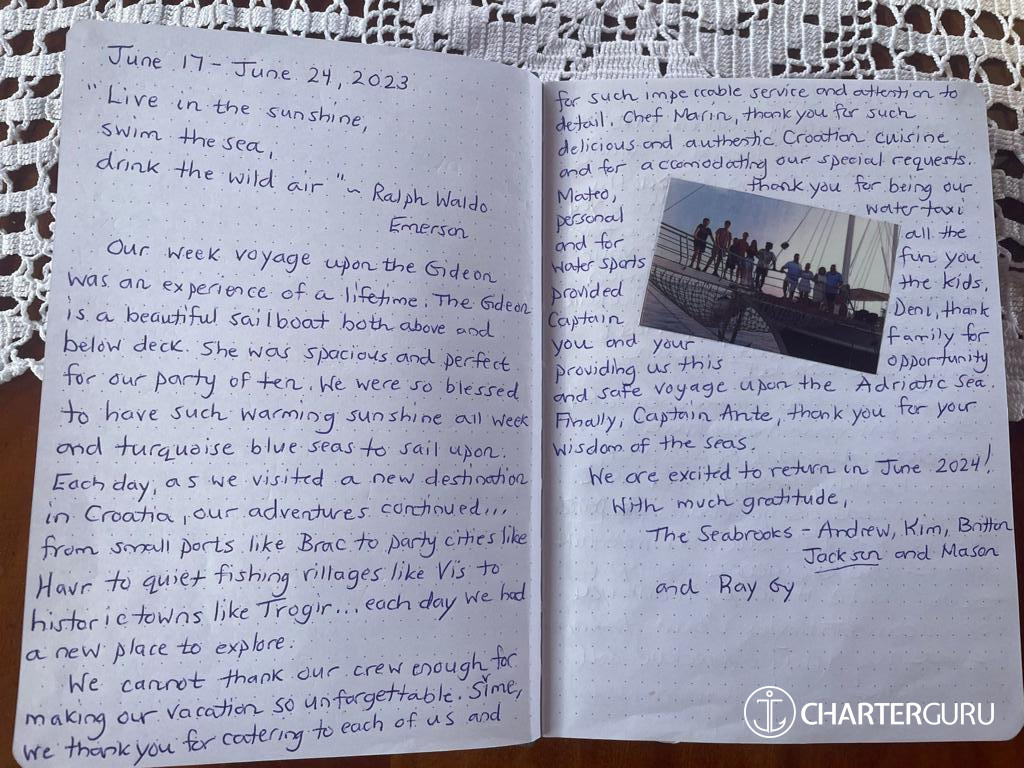 June 17 - June 24, 2023
"Live in the sunshine,
swim the sea,
drink the wild air" ~ Ralph Waldo
Emerson
Our week voyage upon the Gideon
was an experience of a lifetime. The Gideon
is a beautiful sailboat both above and
below deck. She was spacious and perfect
for our party of ten. We were so blessed
to have such warming sunshine all week
and turquoise blue seas to sail upon.
Each day, as we visited a new destination
in Croatia, our adventures continued...
from small ports like Brac to party cities like
Havr to quiet fishing villages like Vis to
historic towns like Trogir... each day we had
a new place to explore.
We cannot thank our crew enough for
making our vacation so unforgettable. Sǐme,
we thank you for catering to each of us and
for such impeccable service and attention to
detail. Chef Marin, thank you for such
delicious and authentic Croation cuisine
and for accomodating our special requests.
Mateo, thank you for being our
personal water taxi
and for all the
water sports fun you
provided the kids.
Captain Deni, thank
you and your family for
providing us this opportunity
and safe voyage upon the Adriatic Sea.
Finally, Captain Ante, thank you for your
wisdom of the seas.
We are excited to return in June 2024!
With much gratitude,
The Seabrooks - Andrew, Kim, Britton
Jackson and Mason
and Ray Gy
CHARTERGURU